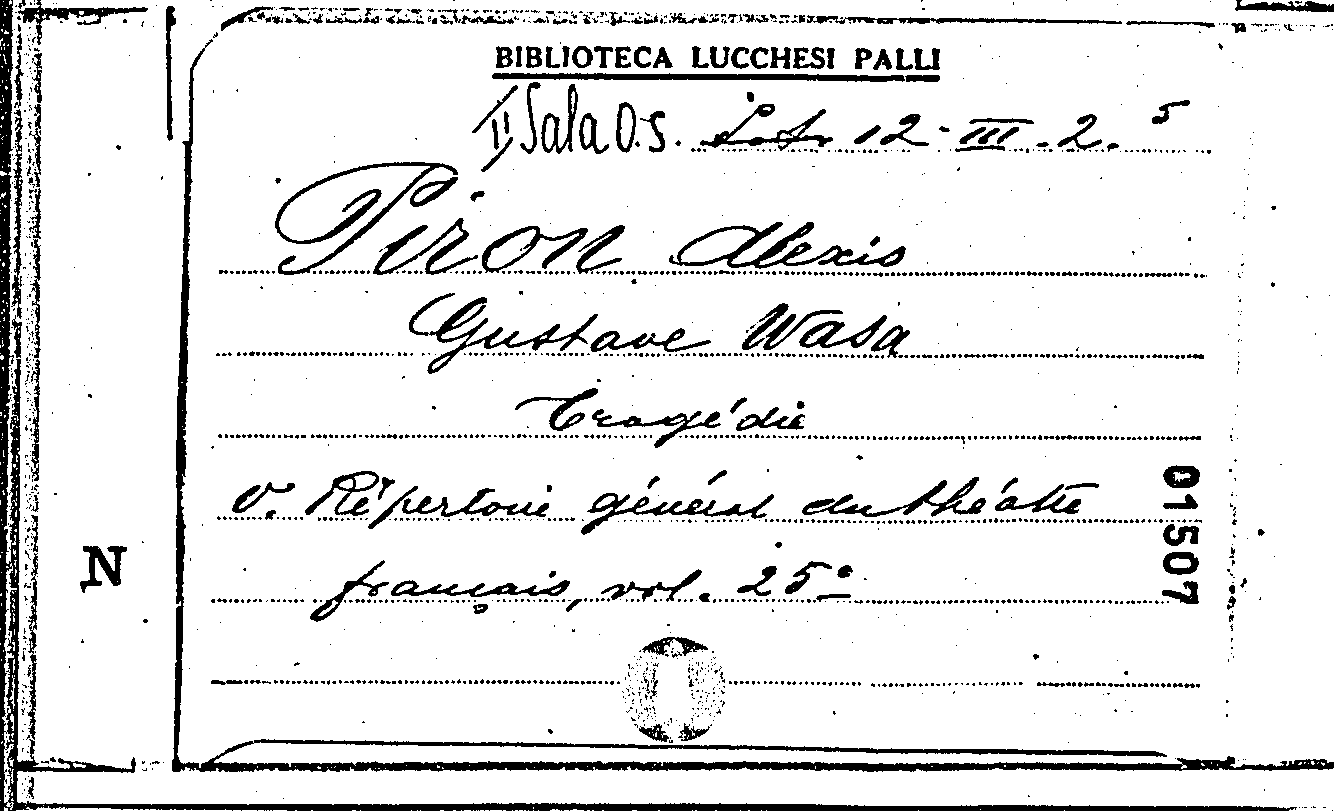 BIBLIOTECA LUCCHESI PALLI
II Sala O.S. 12-III.2.5
Piron Alexis
Gustave Wasa
Tragédie
v. Répertoire général du théatre
français, vol. 25°
01507
N